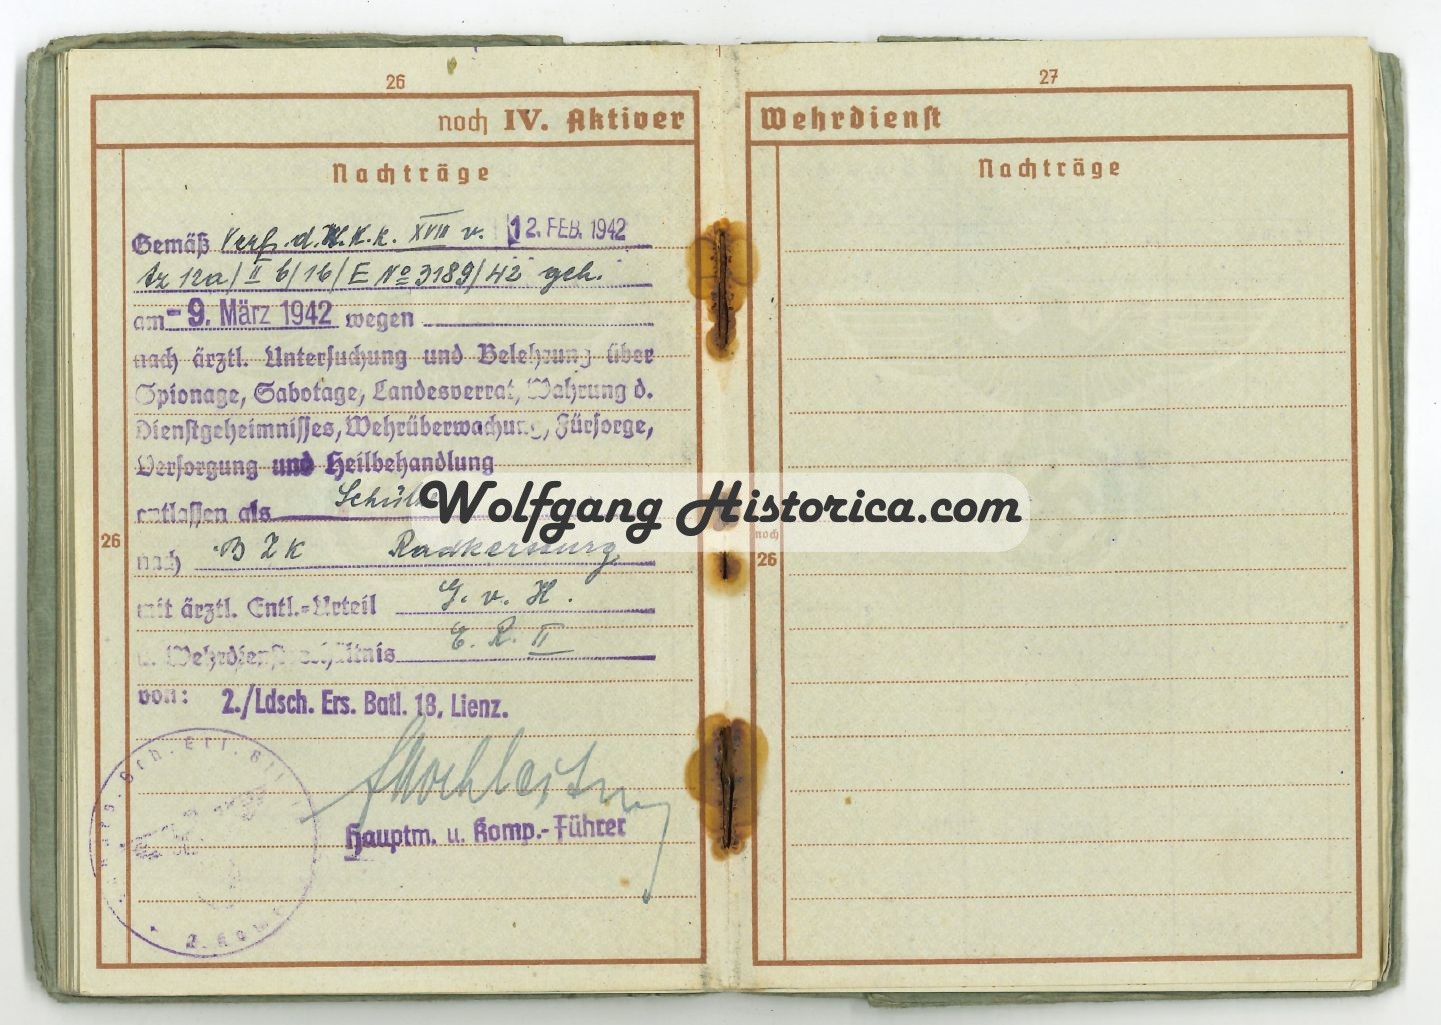 26
noch IV. Aktiver
Nachträge
Gemäß Verf. d. W.K.K. XVIII v. 12. FEB. 1942
Az 12a/II b/16/E No 3189/42 geh.
am - 9. März 1942 wegen
nach ärztl. Untersuchung und Belehrung über
Spionage, Sabotage, Landesverrat, Wahrung d.
Dienstgeheimnisses, Wehrüberwachung, Fürsorge,
Versorgung und Heilbehandlung
entlassen als
26
nach B Z K Radkersburg
mit ärztl. Entl.-Urteil G. v. H.
u. Wehrdienstverhältnis E. R. II
von: 2./Ldsch. Ers. Batl. 18, Lienz.
Hauptm. u. Komp.-Führer
27
Wehrdienst
Nachträge
noch
26
Wolfgang Historica.com